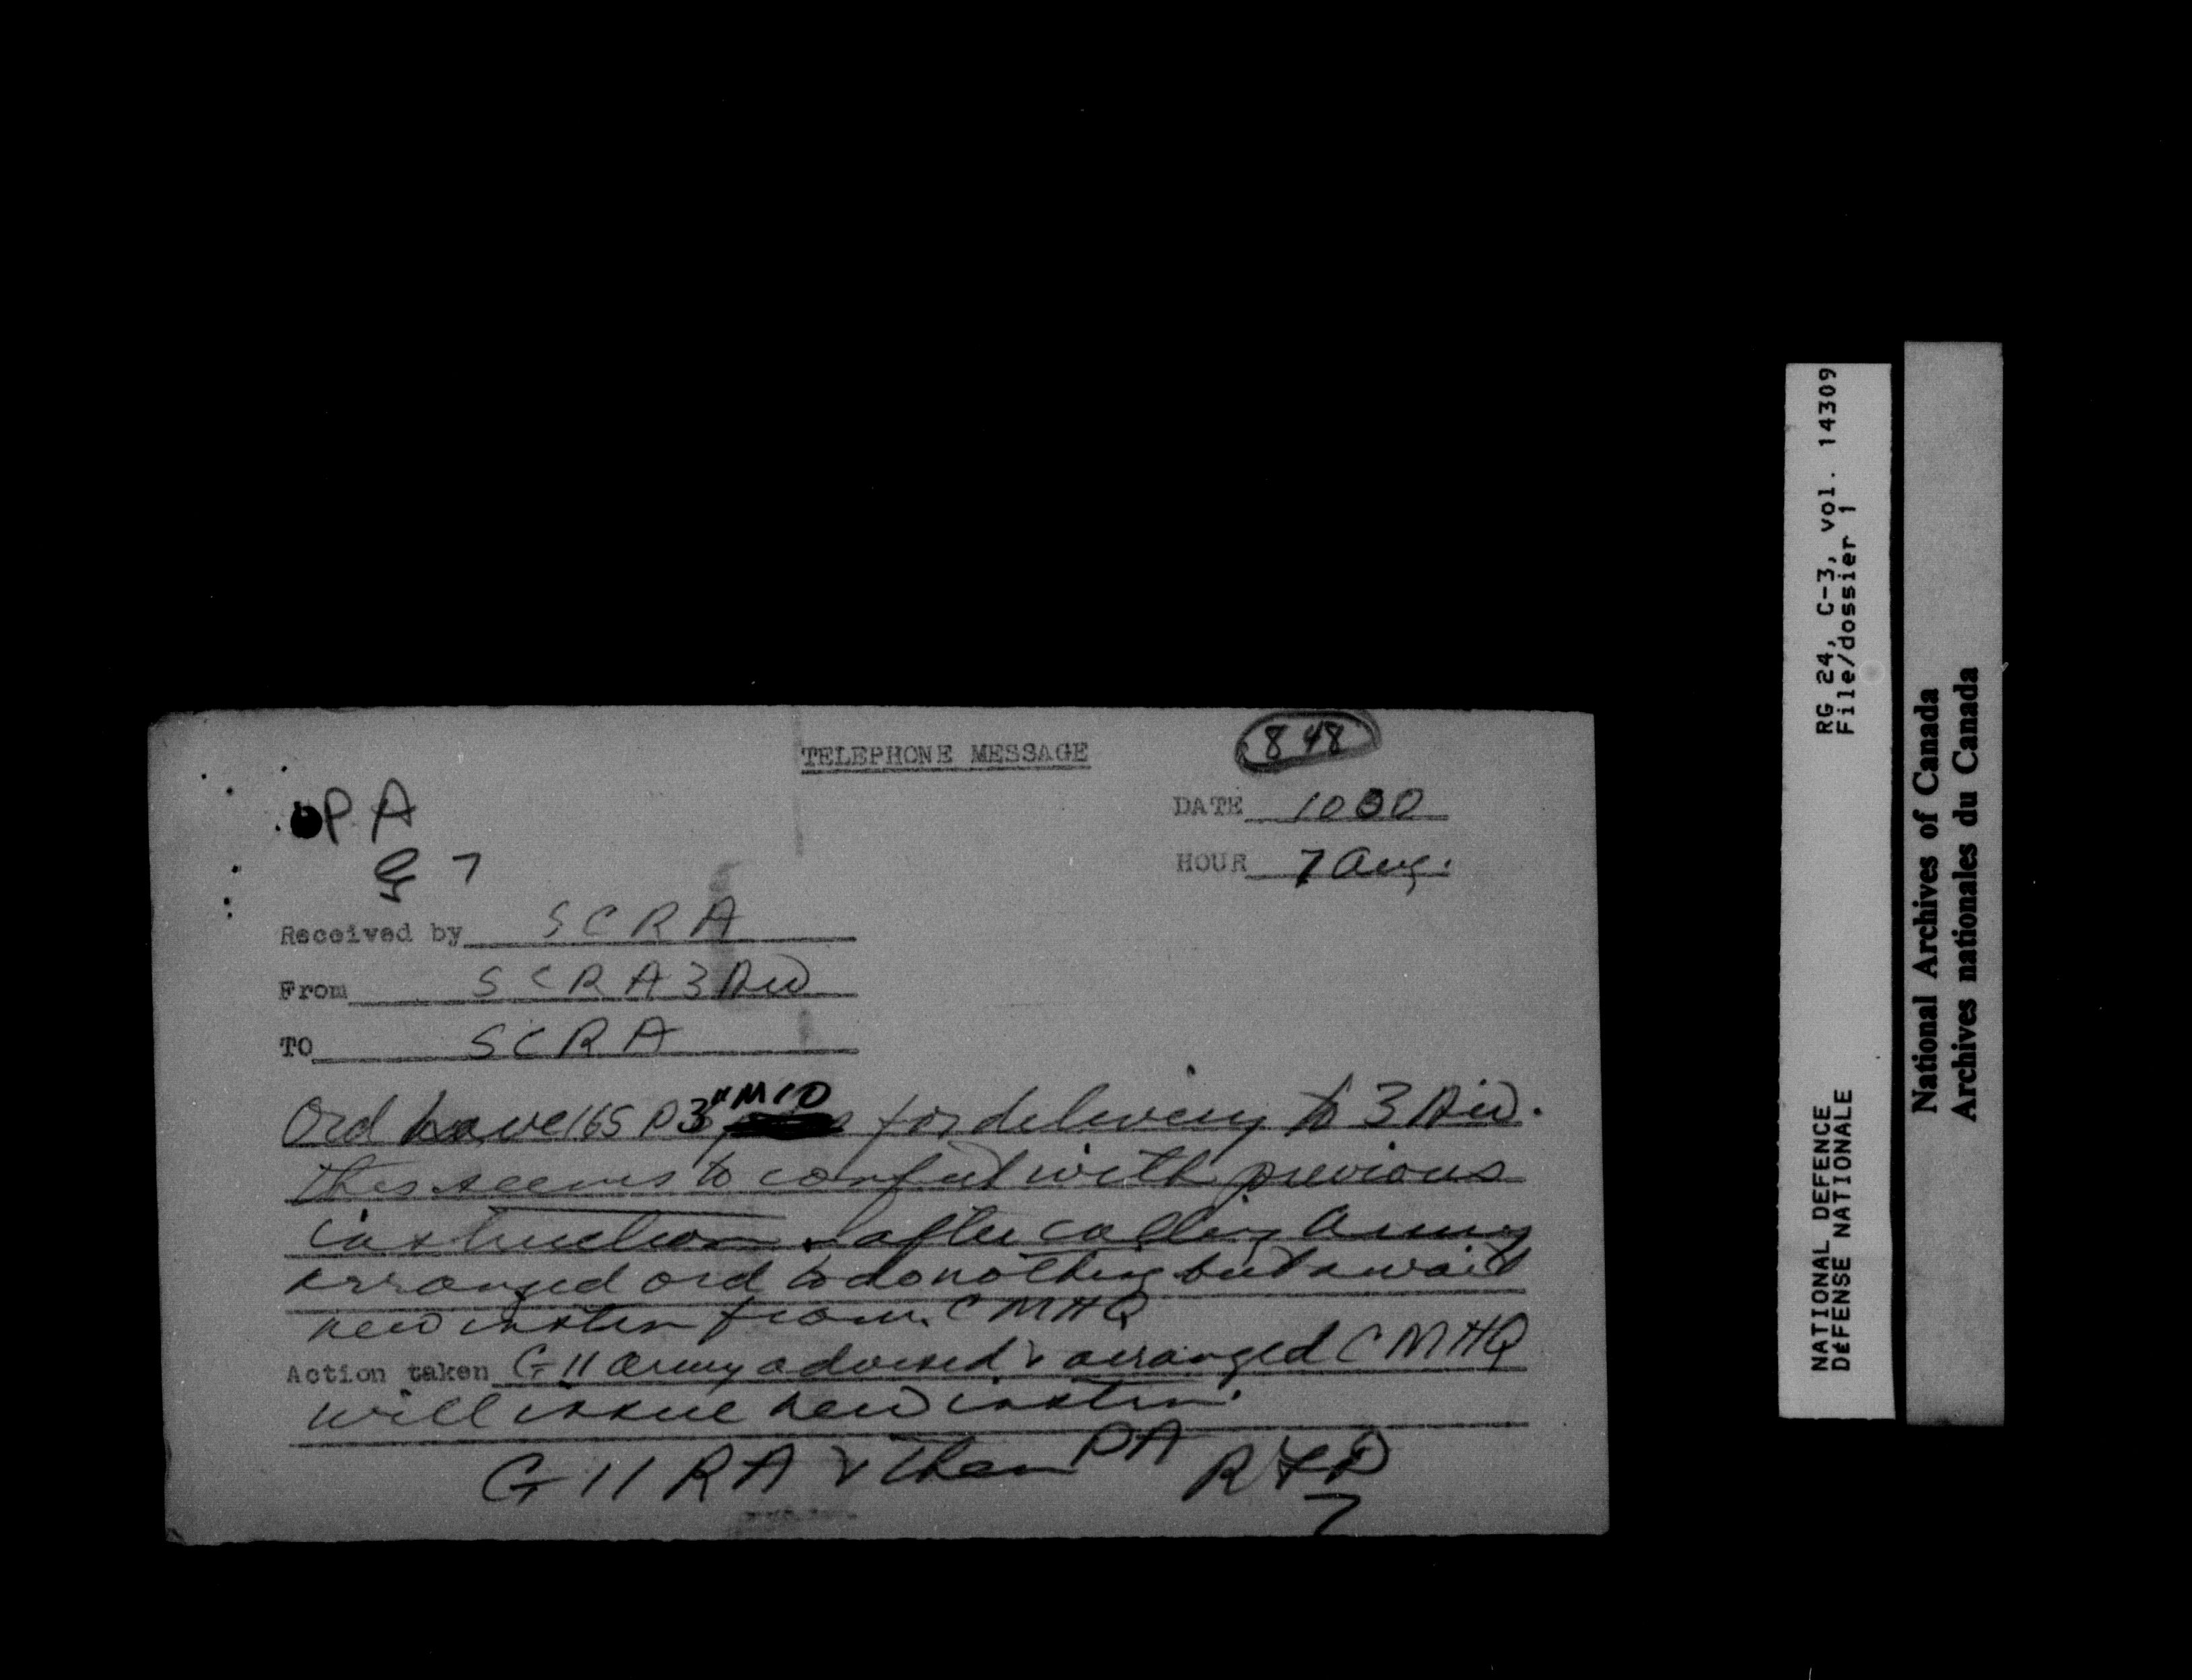 TELEPHONE MESSAGE
848
PA
7
DATE 1000
HOUR 7 Aug.
Received by SCRA
From SCRA 3 Div
TO SCRA
Ord have 165 P 3" M10 for delivery to 3 Div.
This seems to conflict with previous
instruction & after calling Army
arranged ord to do nothing but await
new instrn from CMHQ
Action taken G II Army advised & arranged CMHQ
will issue new instrn.
G II RA & then PA
7
RG 24, C-3, vol. 14309
File/dossier 1
NATIONAL DEFENCE
DÉFENSE NATIONALE
National Archives of Canada
Archives nationales du Canada